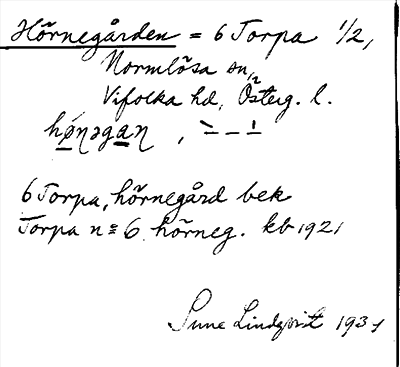 Hörnegården = 6 Torpa 1/2,
Normlösa sn,
Vifolka hd, Österg. l.
6 Torpa, hörnegård bek
Torpa nº 6 hörneg. kb 1921
Sune Lindqvist 1931